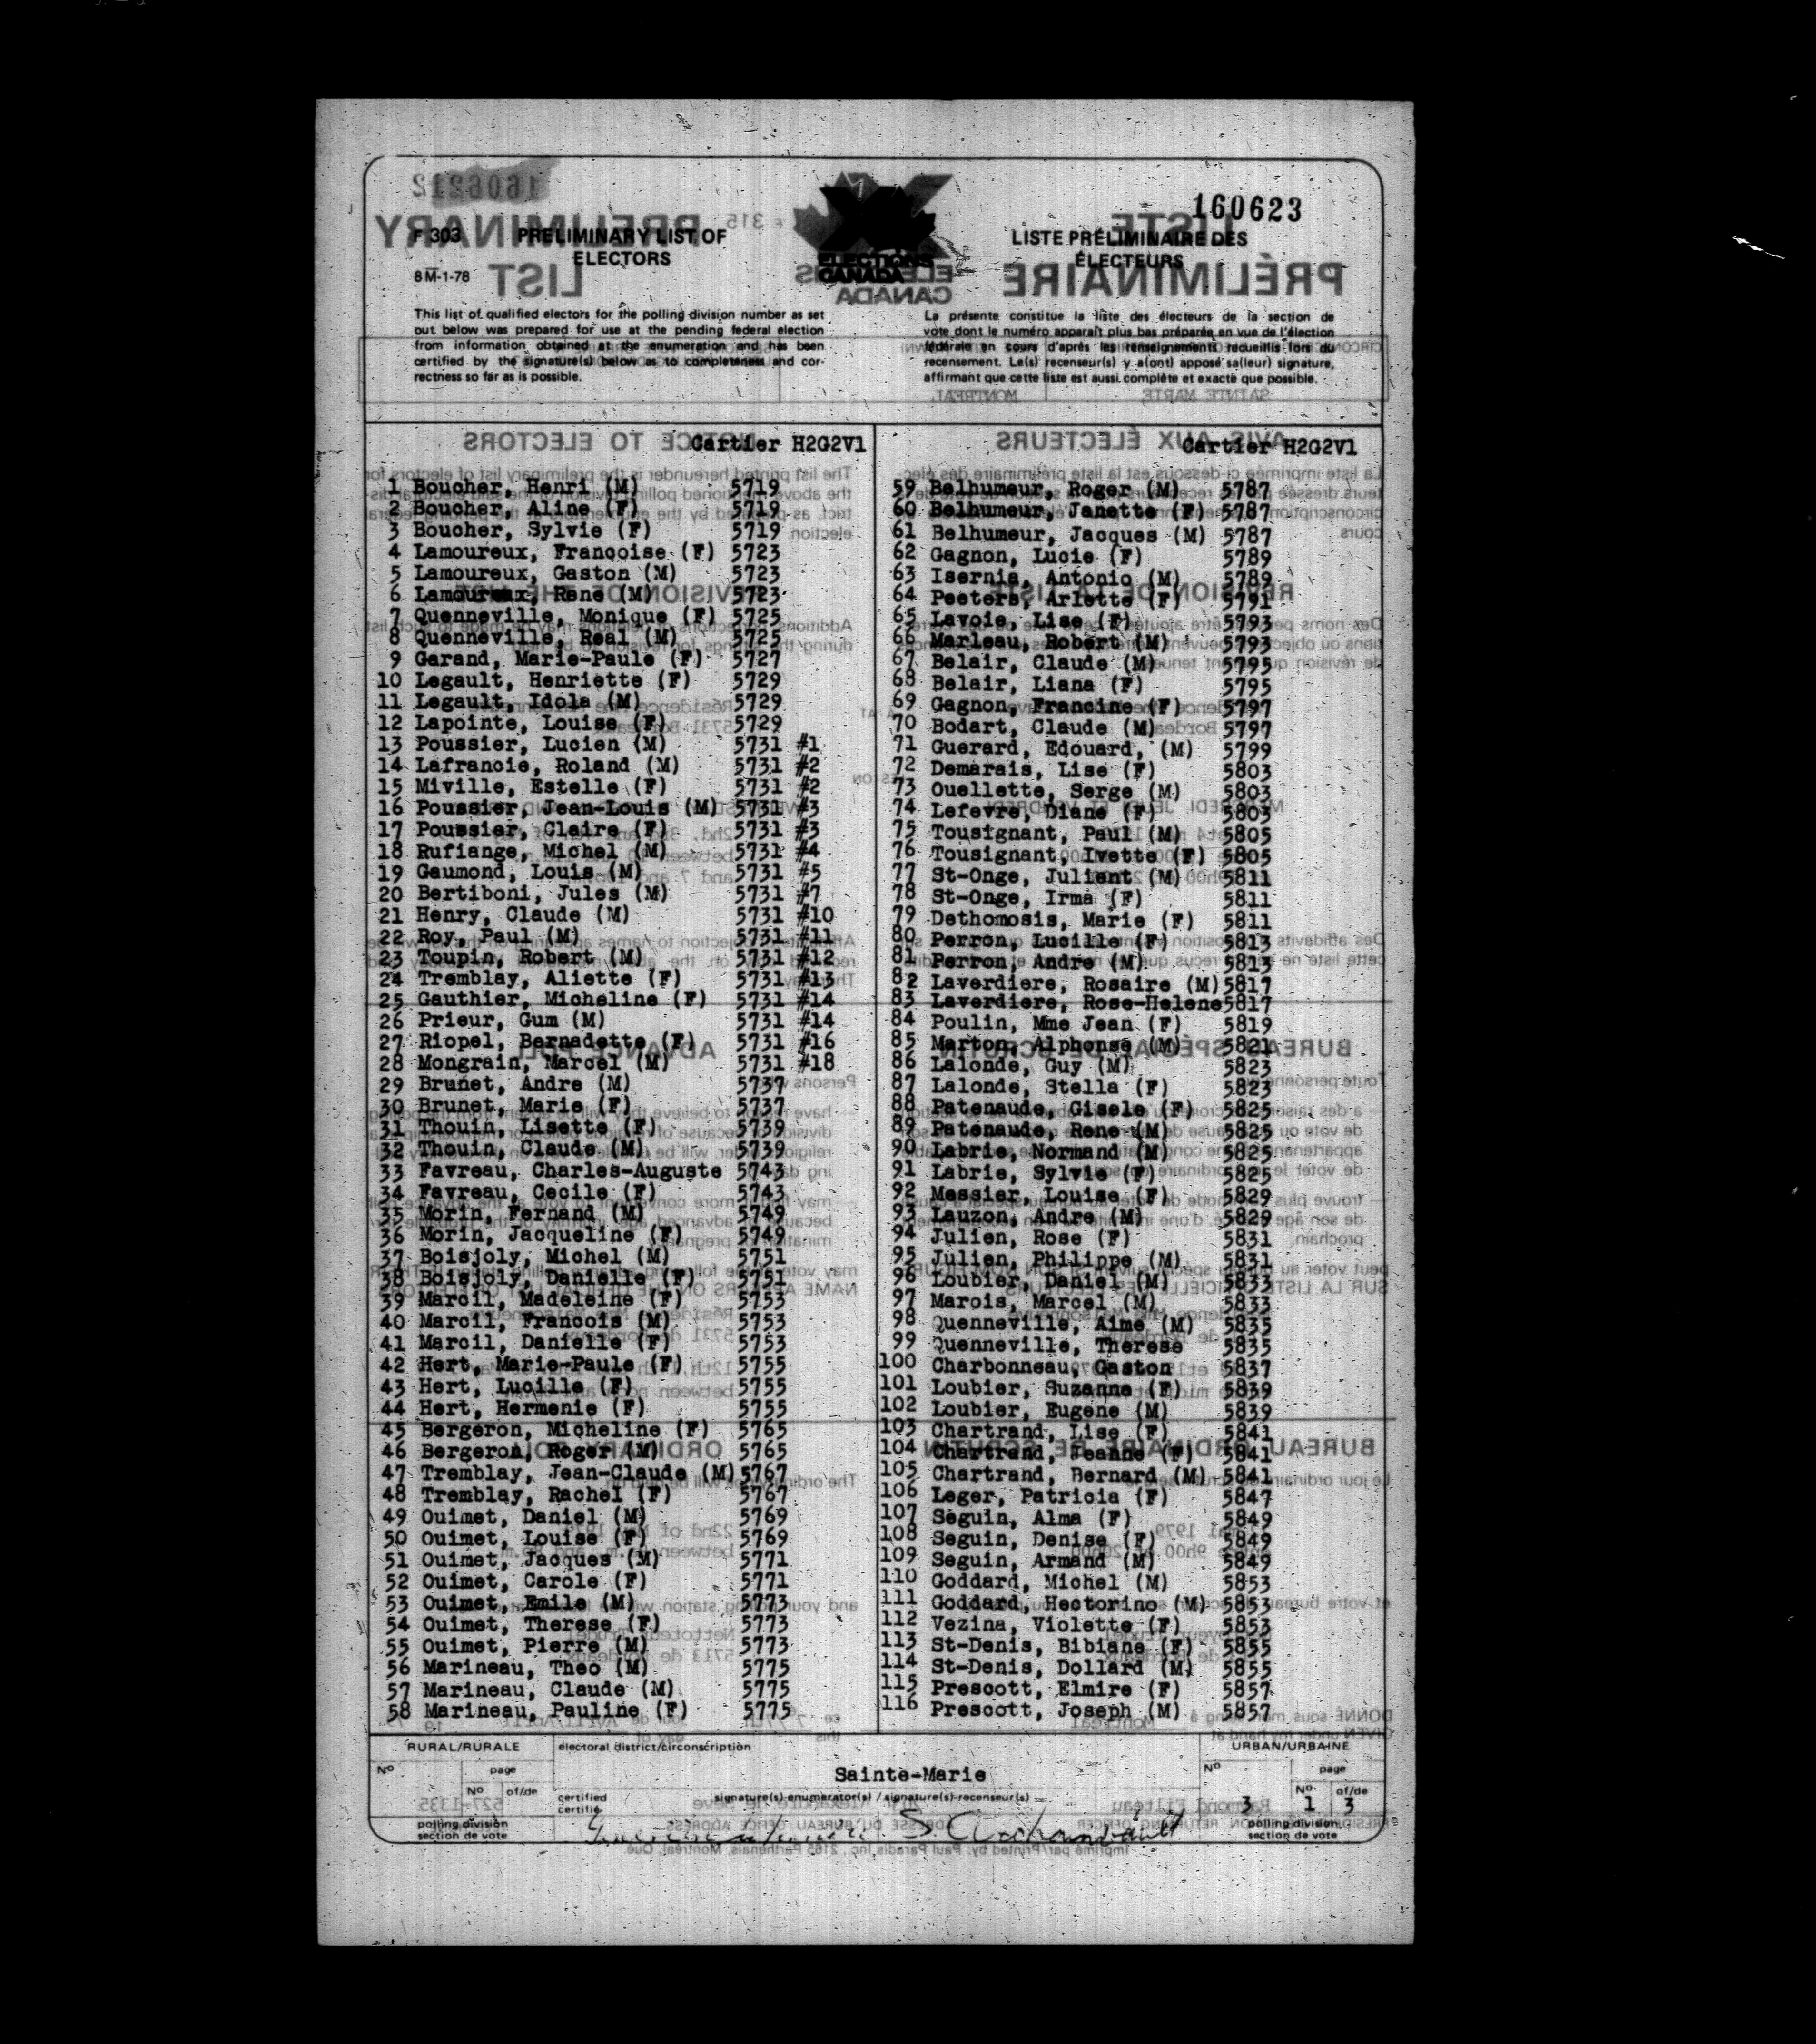 160623
F 303 PRELIMINARY LIST OF
ELECTORS
8 M-1-78
ELECTIONS
CANADA
LISTE PRÉLIMINAIRE DES
ÉLECTEURS
This list of qualified electors for the polling division number as set
out below was prepared for use at the pending federal election
from information obtained at the enumeration and has been
certified by the signature(s) below as to completeness and cor-
rectness so far as is possible.
La présente constitue la liste des électeurs de la section de
vote dont le numéro apparaît plus bas préparée en vue de l'élection
fédérale en cours d'après les renseignements recueillis lors du
recensement. Le(s) recenseur(s) y a(ont) apposé sa(leur) signature,
affirmant que cette liste est aussi complète et exacte que possible.
Cartier H2G2V1
1 Boucher, Henri (M) 5719
2 Boucher, Aline (F) 5719
3 Boucher, Sylvie (F) 5719
4 Lamoureux, Françoise (F) 5723
5 Lamoureux, Gaston (M) 5723
6 Lamoureux, Rene (M) 5723
7 Quenneville, Monique (F) 5725
8 Quenneville, Real (M) 5725
9 Garand, Marie-Paule (F) 5727
10 Legault, Henriette (F) 5729
11 Legault, Idola (M) 5729
12 Lapointe, Louise (F) 5729
13 Poussier, Lucien (M) 5731 #1
14 Lafrancie, Roland (M) 5731 #2
15 Miville, Estelle (F) 5731 #2
16 Poussier, Jean-Louis (M) 5731 #3
17 Poussier, Claire (F) 5731 #3
18 Rufiange, Michel (M) 5731 #4
19 Gaumond, Louis (M) 5731 #5
20 Bertiboni, Jules (M) 5731 #7
21 Henry, Claude (M) 5731 #10
22 Roy, Paul (M) 5731 #11
23 Toupin, Robert (M) 5731 #12
24 Tremblay, Aliette (F) 5731 #13
25 Gauthier, Micheline (F) 5731 #14
26 Prieur, Gum (M) 5731 #14
27 Riopel, Bernadette (F) 5731 #16
28 Mongrain, Marcel (M) 5731 #18
29 Brunet, Andre (M) 5737
30 Brunet, Marie (F) 5737
31 Thouin, Lisette (F) 5739
32 Thouin, Claude (M) 5739
33 Favreau, Charles-Auguste 5743
34 Favreau, Cecile (F) 5743
35 Morin, Fernand (M) 5749
36 Morin, Jacqueline (F) 5749
37 Boisjoly, Michel (M) 5751
38 Boisjoly, Danielle (F) 5751
39 Marcil, Madeleine (F) 5753
40 Marcil, Francois (M) 5753
41 Marcil, Danielle (F) 5753
42 Hert, Marie-Paule (F) 5755
43 Hert, Lucille (F) 5755
44 Hert, Hermenie (F) 5755
45 Bergeron, Micheline (F) 5765
46 Bergeron, Roger (M) 5765
47 Tremblay, Jean-Claude (M) 5767
48 Tremblay, Rachel (F) 5767
49 Ouimet, Daniel (M) 5769
50 Ouimet, Louise (F) 5769
51 Ouimet, Jacques (M) 5771
52 Ouimet, Carole (F) 5771
53 Ouimet, Emile (M) 5773
54 Ouimet, Therese (F) 5773
55 Ouimet, Pierre (M) 5773
56 Marineau, Theo (M) 5775
57 Marineau, Claude (M) 5775
58 Marineau, Pauline (F) 5775
Cartier H2G2V1
59 Belhumeur, Roger (M) 5787
60 Belhumeur, Janette (F) 5787
61 Belhumeur, Jacques (M) 5787
62 Gagnon, Lucie (F) 5789
63 Isernia, Antonio (M) 5789
64 Peeters, Arlette (F) 5791
65 Lavoie, Lise (F) 5793
66 Marleau, Robert (M) 5793
67 Belair, Claude (M) 5795
68 Belair, Liana (F) 5795
69 Gagnon, Francine (F) 5797
70 Bodart, Claude (M) 5797
71 Guerard, Edouard, (M) 5799
72 Demarais, Lise (F) 5803
73 Ouellette, Serge (M) 5803
74 Lefevre, Diane (F) 5803
75 Tousignant, Paul (M) 5805
76 Tousignant, Ivette (F) 5805
77 St-Onge, Julient (M) 5811
78 St-Onge, Irma (F) 5811
79 Dethomosis, Marie (F) 5811
80 Perron, Lucille (F) 5813
81 Perron, Andre (M) 5813
82 Laverdiere, Rosaire (M) 5817
83 Laverdiere, Rose-Helene 5817
84 Poulin, Mme Jean (F) 5819
85 Marton, Alphonse (M) 5821
86 Lalonde, Guy (M) 5823
87 Lalonde, Stella (F) 5823
88 Patenaude, Gisele (F) 5825
89 Patenaude, Rene (M) 5825
90 Labrie, Normand (M) 5825
91 Labrie, Sylvie (F) 5825
92 Messier, Louise (F) 5829
93 Lauzon, Andre (M) 5829
94 Julien, Rose (F) 5831
95 Julien, Philippe (M) 5831
96 Loubier, Daniel (M) 5833
97 Marois, Marcel (M) 5833
98 Quenneville, Aime (M) 5835
99 Quenneville, Therese 5835
100 Charbonneau, Gaston 5837
101 Loubier, Suzanne (F) 5839
102 Loubier, Eugene (M) 5839
103 Chartrand, Lise (F) 5841
104 Chartrand, Jeanne (F) 5841
105 Chartrand, Bernard (M) 5841
106 Leger, Patricia (F) 5847
107 Seguin, Alma (F) 5849
108 Seguin, Denise (F) 5849
109 Seguin, Armand (M) 5849
110 Goddard, Michel (M) 5853
111 Goddard, Hectorino (M) 5853
112 Vezina, Violette (F) 5853
113 St-Denis, Bibiane (F) 5855
114 St-Denis, Dollard (M) 5855
115 Prescott, Elmire (F) 5857
116 Prescott, Joseph (M) 5857
RURAL/RURALE
No
page
No of/de
polling division
section de vote
electoral district/circonscription
Sainte-Marie
certified
certifié
signature(s)-enumerator(s) / signature(s)-recenseur(s)
S. Archambault
URBAN/URBAINE
No
page
No. of/de
3 1 3
polling division
section de vote